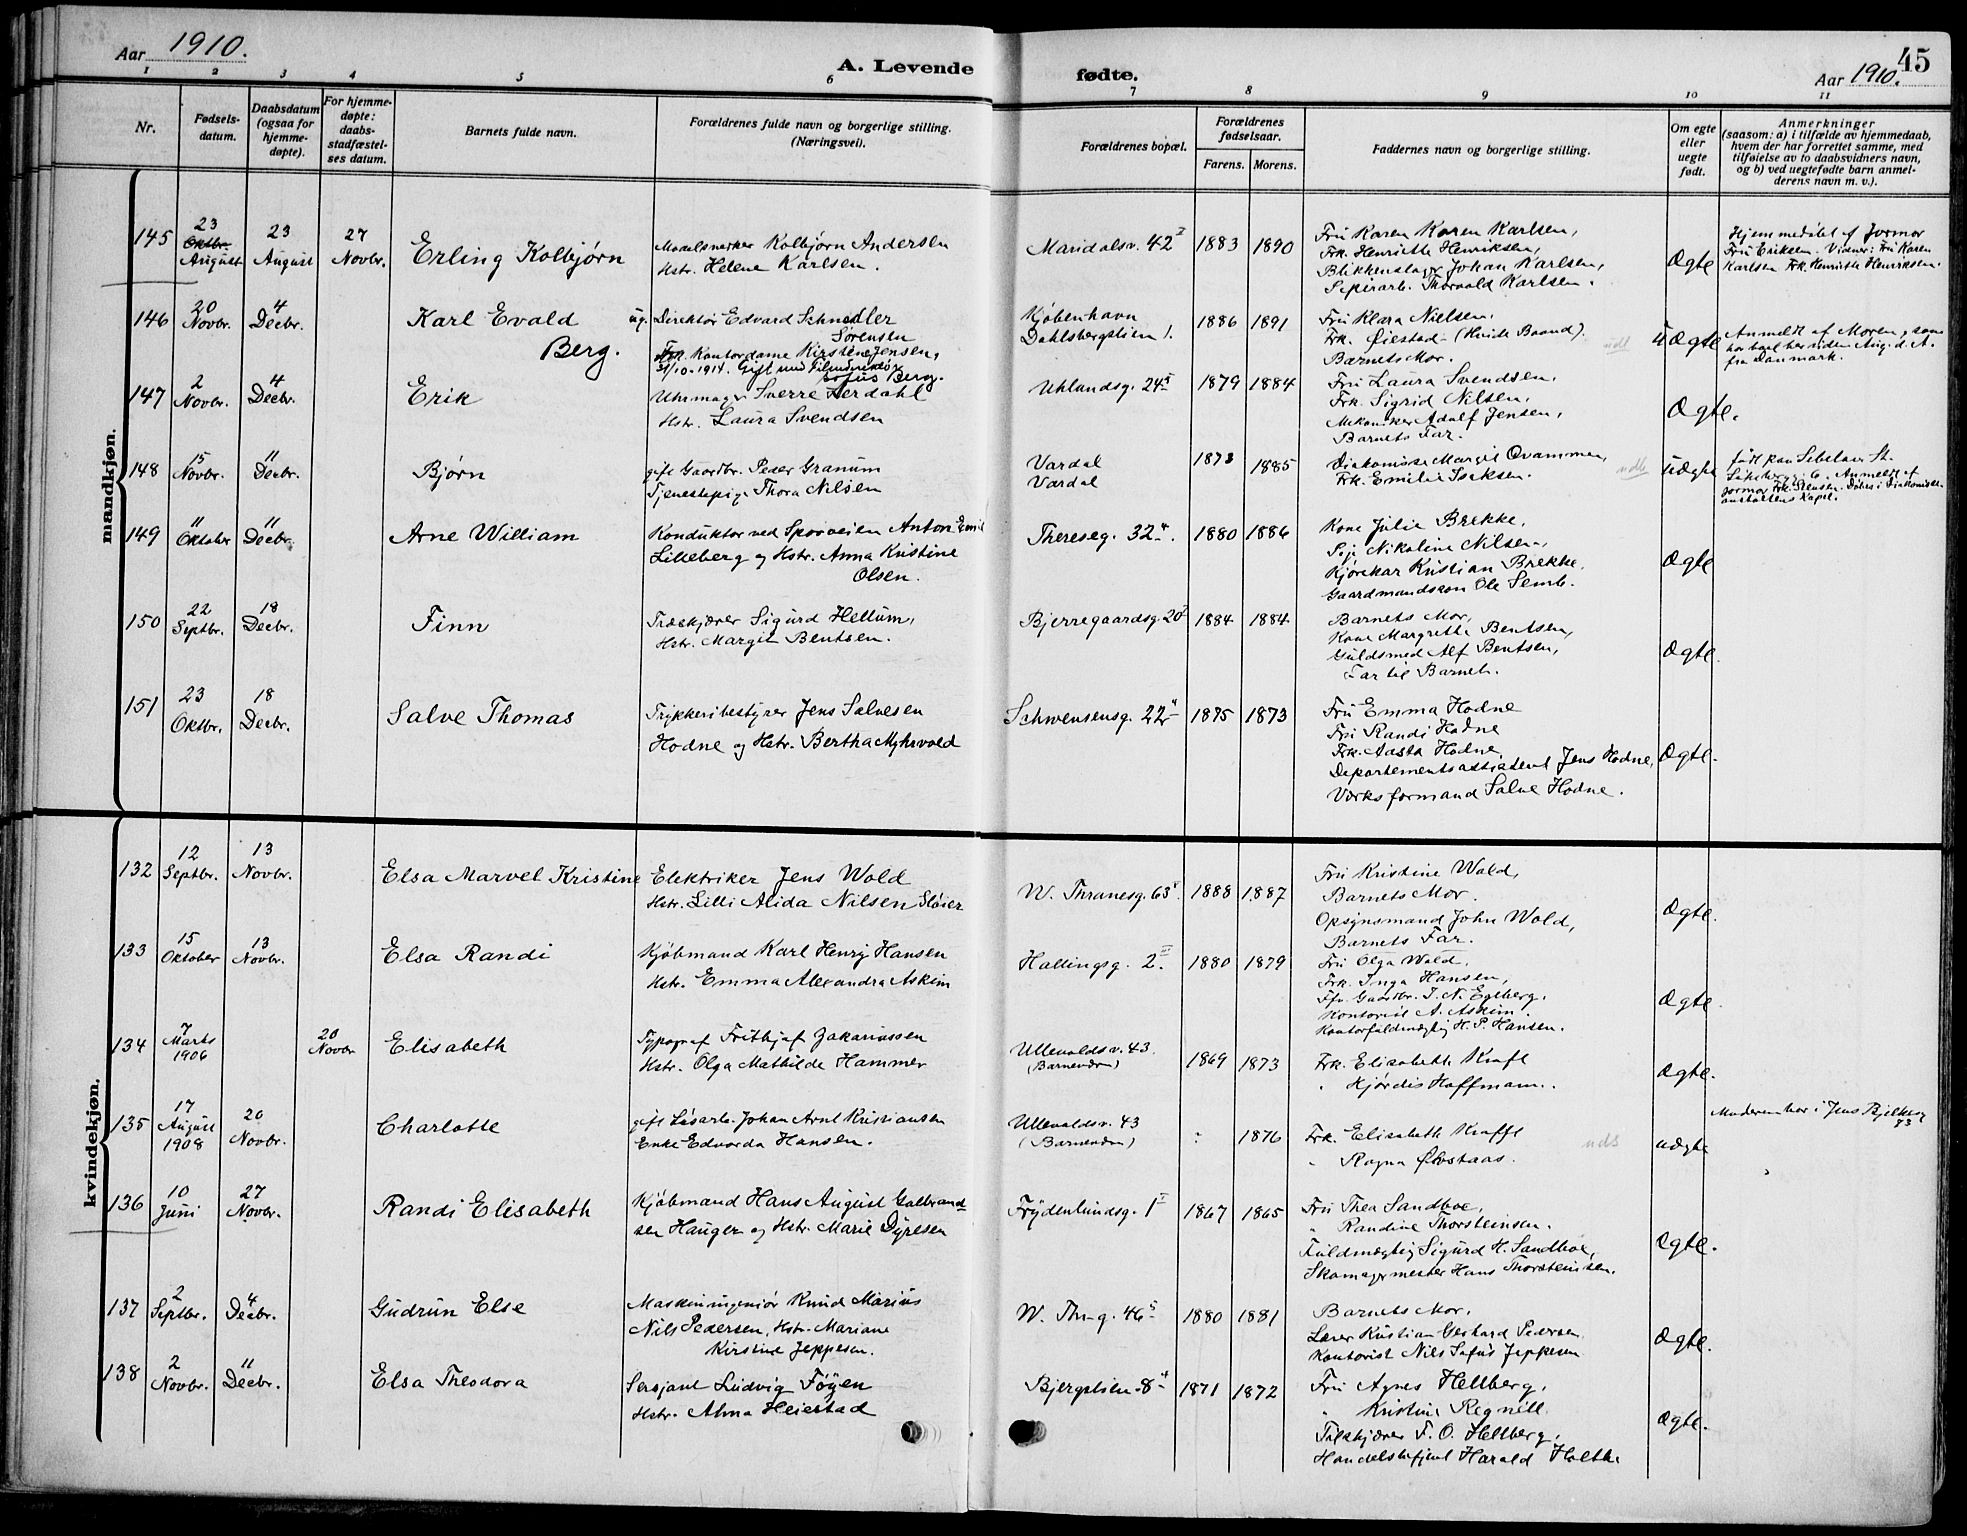 Aar 1910.
A. Levende fødte.
Aar 1910.
45
1 2 3 4 5 6 7 8 9 10 11
Nr.
Fødsels-
datum.
Daabsdatum
(ogsaa for
hjemme-
døpte).
For hjemme-
døpte:
daabs-
stadfæstel-
ses datum.
Barnets fulde navn.
Forældrenes fulde navn og borgerlige stilling.
(Næringsvei).
Forældrenes bopæl.
Forældrenes
fødselsaar.
Farens. Morens.
Faddernes navn og borgerlige stilling.
Om egte
eller
uegte
født.
Anmerkninger
(saasom: a) i tilfælde av hjemmedaab,
hvem der har forrettet samme, med
tilføielse av to daabsvidners navn,
og b) ved uegtefødte barn anmel-
derens navn m. v.).
mandkjøn.
145
23
Oktbr.
August
23
August
27
Novbr.
Erling Kolbjørn
Modelsnekker Kolbjørn Andersen
Hstr. Helene Karlsen.
Maridalsv. 42 I
1883 1890
Fru Karen Karlsen,
Frk. Henriette Henriksen,
Blikkenslager Johan Karlsen,
Thorvald Karlsen.
Ægte
Hjemmedøbt af Jormor
Fru Eriksen. Vidner: Fru Karen
Karlsen Frk. Henriette Henriksen.
146
20
Novbr.
4
Decbr.
Karl Evald
Berg.
ug. Direktør Edvard Schnedler
Sørensen
Frk. Kontordame Kirstine Jensen,
31/10-1914. Gift med
Berg.
Kjøbenhavn
Dahlsbergstien 1.
1886 1891
Fru Klara Nielsen.
Frk. Øiestad (Hvide Baand).
Barnets Mor.
uÆgte
Anmeldt af Moren, som
har boet her siden Aug. d. A.
fra Danmark.
147
2
Novbr.
4
Decbr.
Erik
Uhrmager Sverre Lerdahl
Hstr. Laura Svendsen
Uhlandsg. 24
1879 1884
Fru Laura Svendsen,
Frk. Sigrid Nilsen,
Mekaniker Adolf Jensen,
Barnets Far.
Ægte.
148
15
Novbr.
11
Decbr.
Bjørn
gift Gaardbr. Peder Granum
Tjenestepige Thora Nilsen
Vardal
Vardal
1873 1885
Diakonisse Margit Qvammen,
Frk. Emilie Isaksen.
uægte
Anmeldt af
149
11
Oktober
11
Decbr.
Arne William
Konduktør ved Sporveien Anton Emil
Lilleberg og Hstr. Anna Kristine
Olsen.
Thereseg. 32 4.
1880 1886
Kone Julie Brekke,
Nikoline Nilsen,
Kjørekar Kristian Brekke,
Gaardmandssøn Ole Semb.
Ægte
150
22
Septbr.
18
Decbr.
Finn
Træskjærer Sigurd Hellum,
Hstr. Margit Bentsen.
Bjerregaardsg. 20 I
1884 1884
Barnets Mor,
Kone Margrethe Bentsen,
Guldsmed Alf Bentsen,
Far til Barnet.
Ægte.
151
23
Oktbr.
18
Decbr.
Salve Thomas
Trykkeribestyrer Jens Salvesen
Hodne og Hstr. Bertha Myhrvold
Schwensensg. 22
1875 1873
Fru Emma Hodne
Fru Randi Hodne
Frk. Aasta Hodne,
Departementsassistent Jens Hodne,
Værksformand Salve Hodne.
Ægte.
kvindekjøn.
132
12
Septbr.
13
Novbr.
Elsa Marvel Kristine
Elektriker Jens Wold
Hstr. Lilli Alida Nilsen Sløier
W. Thranesg. 63
1888 1887
Fru Kristine Wold,
Barnets Mor.
Opsynsmand John Wold,
Barnets Far.
Ægte.
133
15
Oktober
13
Novbr.
Elsa Randi
Kjøbmand Karl Henry Hansen
Hstr. Emma Alexandra Askim
Hallingsg. 2 III
1880 1879
Fru Olga Wold,
Frk. Inga Hansen,
Gaardbr. I. N. Egeberg,
Kontorist A. Askim.
Kontorfuldmægtig H. P. Hansen.
Ægte.
134
7
Marts
1906
20
Novbr
Elisabeth
Typograf Frithjof Zakariassen
Hstr. Olga Mathilde Hammer
Ullevoldsv. 43.
1869 1873
Frk. Elisabeth Kraft
" Hjørdis Hoffmann.
Ægte.
135
17
August
1908
20
Novbr.
Charlotte
gift Løsarb. Johan Arnt Kristiansen
Enke Edvarda Hansen.
Ullevoldsv. 43
1876
Frk. Elisabeth Krafft
" Ragna Øvstaas.
uægte
Moderen bor i Jens Bjelkesg
73
136
10
Juni
27
Novbr.
Randi Elisabeth
Kjøbmand Hans August Gulbrand-
sen Hauger og Hstr. Marie Dyresen
Frydenlundsg. 1 I
1867 1865
Fru Thea Sandboe,
" Randine Thorsteinsen.
Fuldmægtig Sigurd H. Sandboe,
Skomagermester Hans Thorsteinsen.
Ægte.
137
2
Septbr.
4
Decbr.
Gudrun Else
Maskiningeniør Knud Marius
Nils Pedersen, Hstr. Mariane
Kirstine Jeppesen.
W. Thr.g. 46
1880 1881
Barnets Mor,
Lærer Kristian Gerhard Pedersen
Kontorist Nils Sofus Jeppesen
Ægte.
138
2
Novbr.
11
Decbr.
Elsa Theodora
Sersjant Ludvig Føyen
Hstr. Alma Heiestad
Bjergstien 8 4
1871 1872
Fru Agnes Hellberg,
" Kristine Regnell
F. O. Hellberg,
Handelsbetjent Harald Holthe
Ægte.